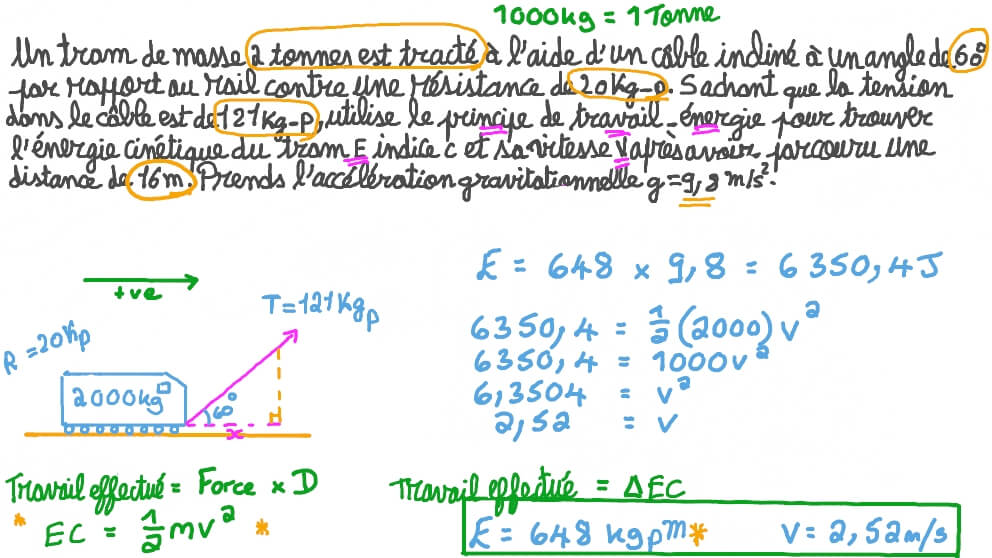 1000kg = 1 Tonne
Un tram de masse 2 tonnes est tracté à l'aide d'un câble incliné à un angle de 60°
par rapport au rail contre une résistance de 20 Kg-p. Sachant que la tension
dans le câble est de 121 Kg-p, utilise le principe de travail-énergie pour trouver
l'énergie cinétique du tram E indice c et sa vitesse V après avoir parcouru une
distance de 16 m. Prends l'accélération gravitationnelle g = 9,8 m/s².
E = 648 × 9,8 = 6 350,4 J
+ve
T = 121 Kgp
R = 20 Kp
2000kg
60°
x
6350,4 = ½ (2000) v²
6350,4 = 1000v²
6,3504 = v²
2,52 = v
Travail effectué = Force × D
* EC = ½ mv² *
Travail effectué = ΔEC
E = 648 kgpm* V = 2,52 m/s